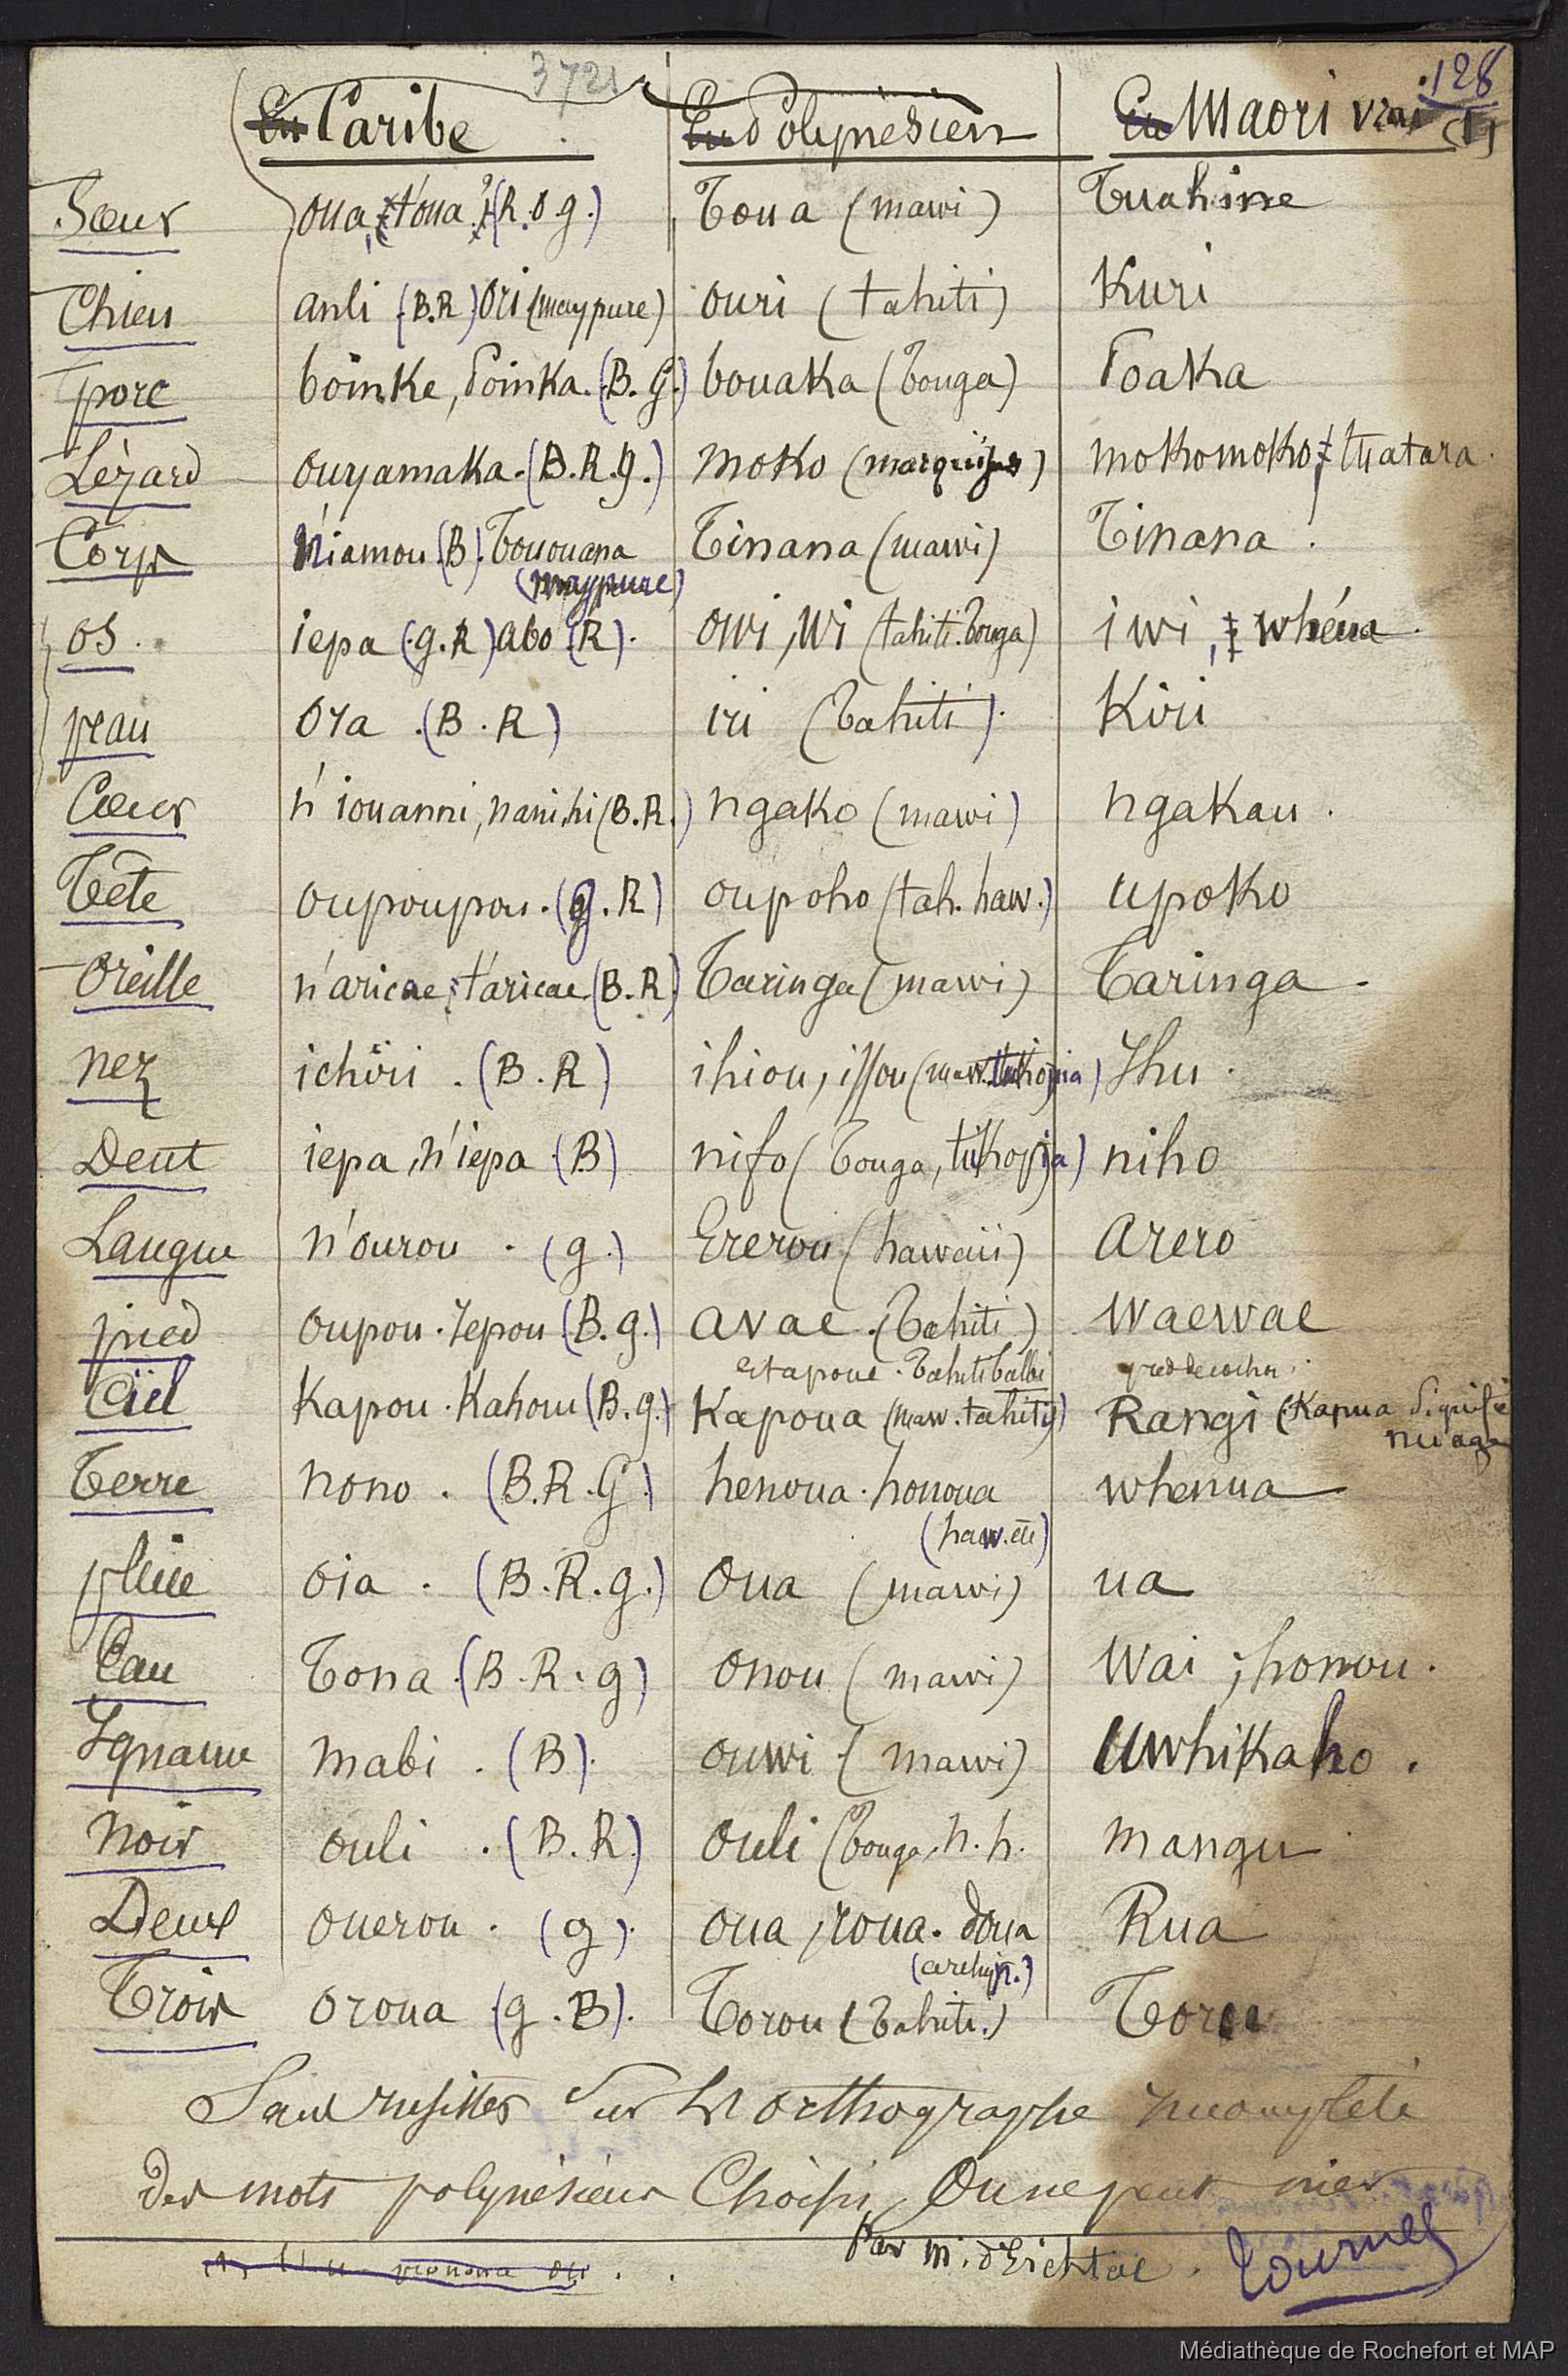 3721
128
Caribe Polynésien Maori vrai (1)
Soeur oua, t'oua? (R.O.g.) Toua (mawi) Tuahine
Chien anli (B.R) Ori (maypure) ouri (tahiti) Kuri
porc boinke, Poinka. (B.G.) bouaka (Tonga) Poaka
Lézard ouyamaka. (B.R.g.) moko (marquises) mokomoko, tuatara.
Corps n'iamou (B). Tououana (maypure) Tinana (mawi) Tinana.
os iepa (g.R) abo (R). owi, wi (tahiti. Tonga) iwi, whéua.
peau ora (B.R) iri (Tahiti). Kiri
Coeur n'iouanni, nanichi (B.R.) ngako (mawi) ngakau.
Tête oupoupou. (g.R) oupoho (tah. haw.) upoko
Oreille n'aricae, t'aricae (B.R) Taringa (mawi) Taringa.
nez ichiri. (B.R) ihiou, issou (maw. tukopia) Ihu.
Dent iepa, n'iepa (B) nifo (Tonga, tukopia) niho
Langue n'ourou. (g.) Ererou (hawaii) arero
pied oupou. Iepou (B.g.) avae. (Tahiti) Waewae
etapoué. Tahiti balbi pied de cochon.
Ciel Kapou. Kahouu (B.g.) Kapoua (maw. tahiti) Rangi (Kapua signifie
nuage
Terre nono. (B.R.G.) henoua. honoua whenua
(haw. etc)
pluie oia. (B.R.g.) Oua (mawi) ua
Eau Tona (B.R.g) onou (mawi) Wai; honou.
Igname mabi. (B). ouwi (mawi) Uwhikaho.
noir ouli. (B.R.) Ouli (Tonga, n.h. mangu
Deux oueron. (g). oua, roua. doua Rua
(archip.)
Trois oroua (g.B). Torou (Tahiti.) Toru
Sans insister sur l'orthographe incomplète
des mots polynésiens Choisis, On ne peut nier
Par M. d'Eichtal.
Tournez
Médiathèque de Rochefort et MAP